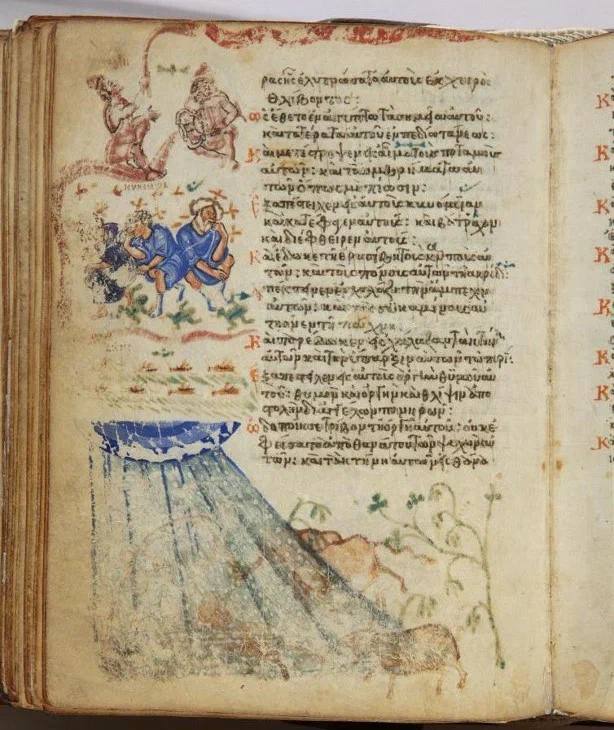 ρας ἧς ἐλυτρώσατο αὐτοὺς ἐκ χειρὸς
θλίβοντος:
ὡς ἔθετο ἐν αἰγύπτω τὰ σημεῖα αὐτοῦ:
καὶ τὰ τέρατα αὐτοῦ ἐν πεδίω τάνεως:
Καὶ μετέστρεψεν εἰς αἷμα τοὺς ποταμοὺς
αὐτῶν: καὶ τὰ ὀμβρήματα αὐ
τῶν ὅπως μὴ πίωσιν:
ἐξαπέστειλεν εἰς αὐτοὺς κυνόμυιαν
καὶ κατέφαγεν αὐτούς: καὶ βάτραχον
καὶ διέφθειρεν αὐτούς:
Καὶ ἔδωκε τῆ ἐρυσίβη τοὺς καρποὺς αὐ
τῶν: καὶ τοὺς πόνους αὐτῶν τῆ ἀκρίδι:
ἀπέκτεινεν ἐν χαλάζη τὴν ἄμπελον
αὐτῶν: καὶ τὰς συκαμίνους αὐ
τῶν ἐν τῆ πάχνη
Καὶ παρέδωκεν εἰς χάλαζαν τὰ κτήνη
αὐτῶν καὶ τὴν ὕπαρξιν αὐτῶν τῶ πυρί:
Ἐξαπέστειλεν εἰς αὐτοὺς ὀργὴν θυμοῦ αὐ
τοῦ: θυμὸν καὶ ὀργὴν καὶ θλίψιν ἀπο
στολὴν δι' ἀγγέλων πονηρῶν:
ὡδοποίησε τρίβον τῆ ὀργῆ αὐτοῦ: οὐκ ἐ
φείσατο ἀπὸ θανάτου τῶν ψυχῶν αὐ
τῶν: καὶ τὰ κτήνη αὐτῶν εἰς θάνα